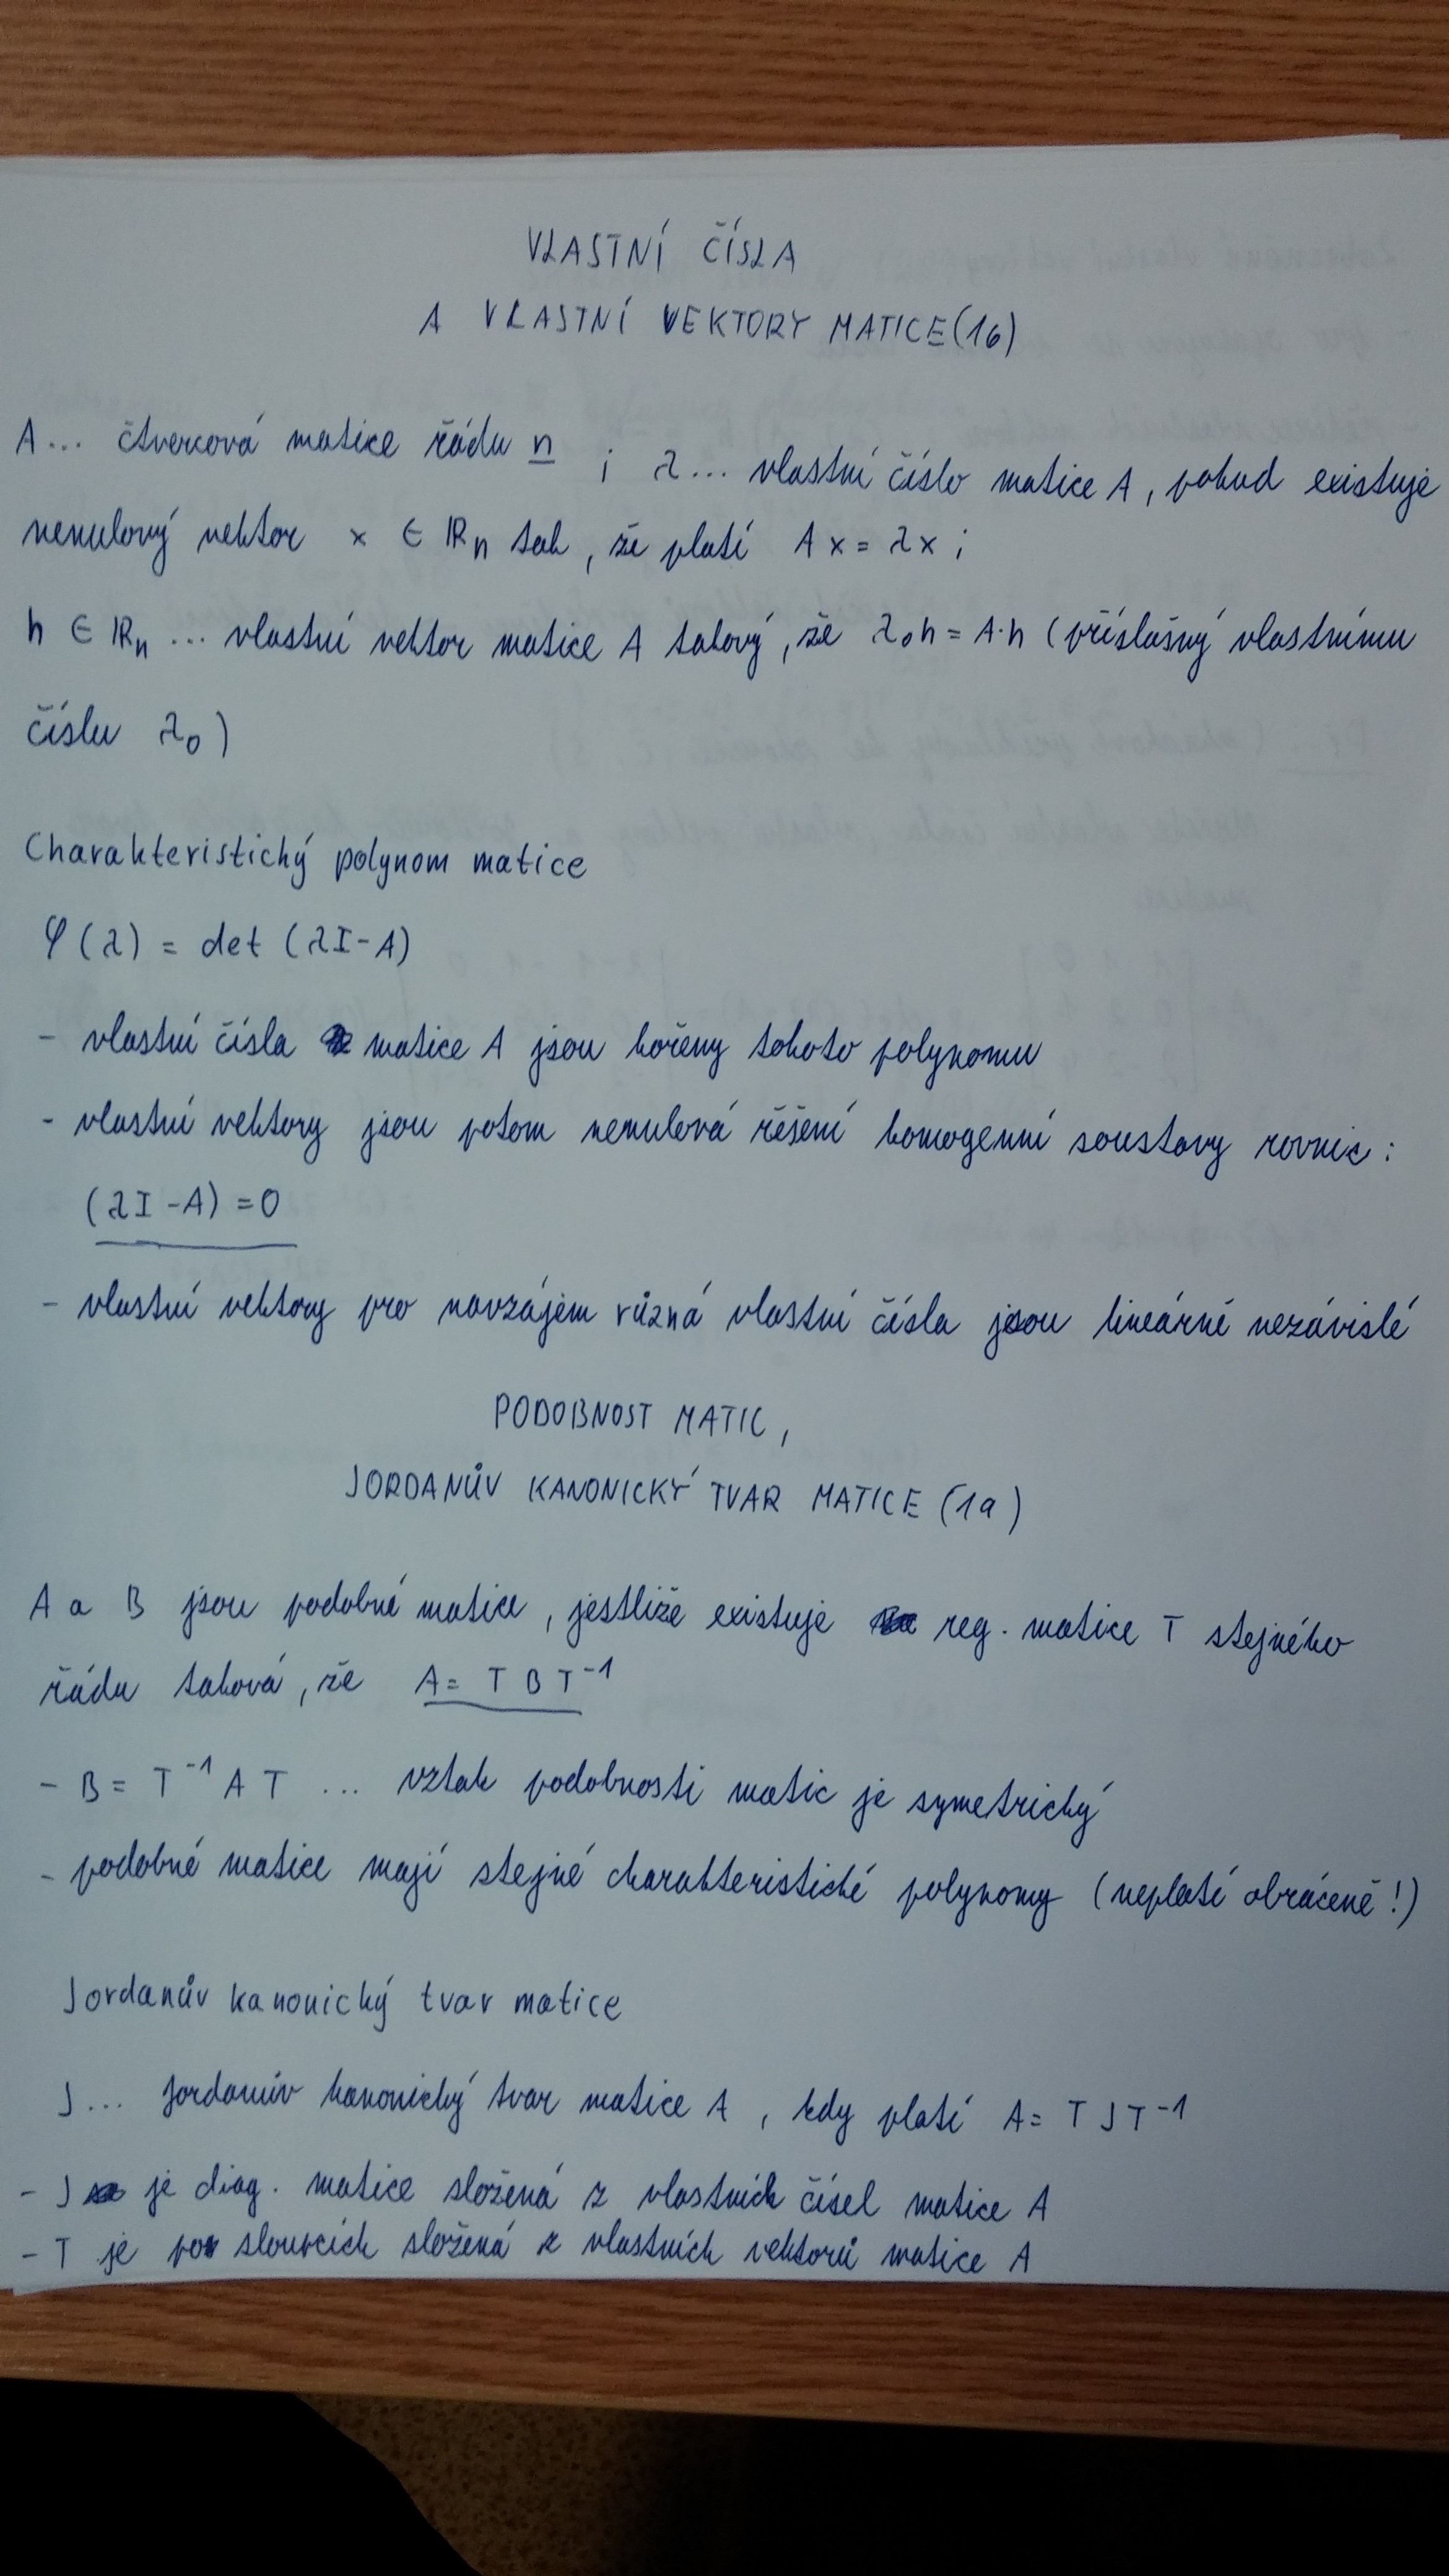 VLASTNÍ ČÍSLA
A VLASTNÍ VEKTORY MATICE (16)
A... čtvercová matice řádu n ; λ... vlastní číslo matice A, pokud existuje
nenulový vektor x ∈ ℝn tak, že platí Ax = λx ;
h ∈ ℝn ... vlastní vektor matice A takový, že λ₀h = A·h (příslušný vlastnímu
číslu λ₀)
Charakteristický polynom matice
φ(λ) = det (λI-A)
- vlastní čísla matice A jsou kořeny tohoto polynomu
- vlastní vektory jsou potom nenulová řešení homogenní soustavy rovnic:
(λI-A) = 0
- vlastní vektory pro navzájem různá vlastní čísla jsou lineárně nezávislé
PODOBNOST MATIC,
JORDANŮV KANONICKÝ TVAR MATICE (19)
A a B jsou podobné matice, jestliže existuje reg. matice T stejného
řádu taková, že A = T B T⁻¹
- B = T⁻¹ A T ... vztah podobnosti matic je symetrický
- podobné matice mají stejné charakteristické polynomy (neplatí obráceně!)
Jordanův kanonický tvar matice
J... Jordanův kanonický tvar matice A, kdy platí A = T J T⁻¹
- J je diag. matice složená z vlastních čísel matice A
- T je po sloupcích složená z vlastních vektorů matice A